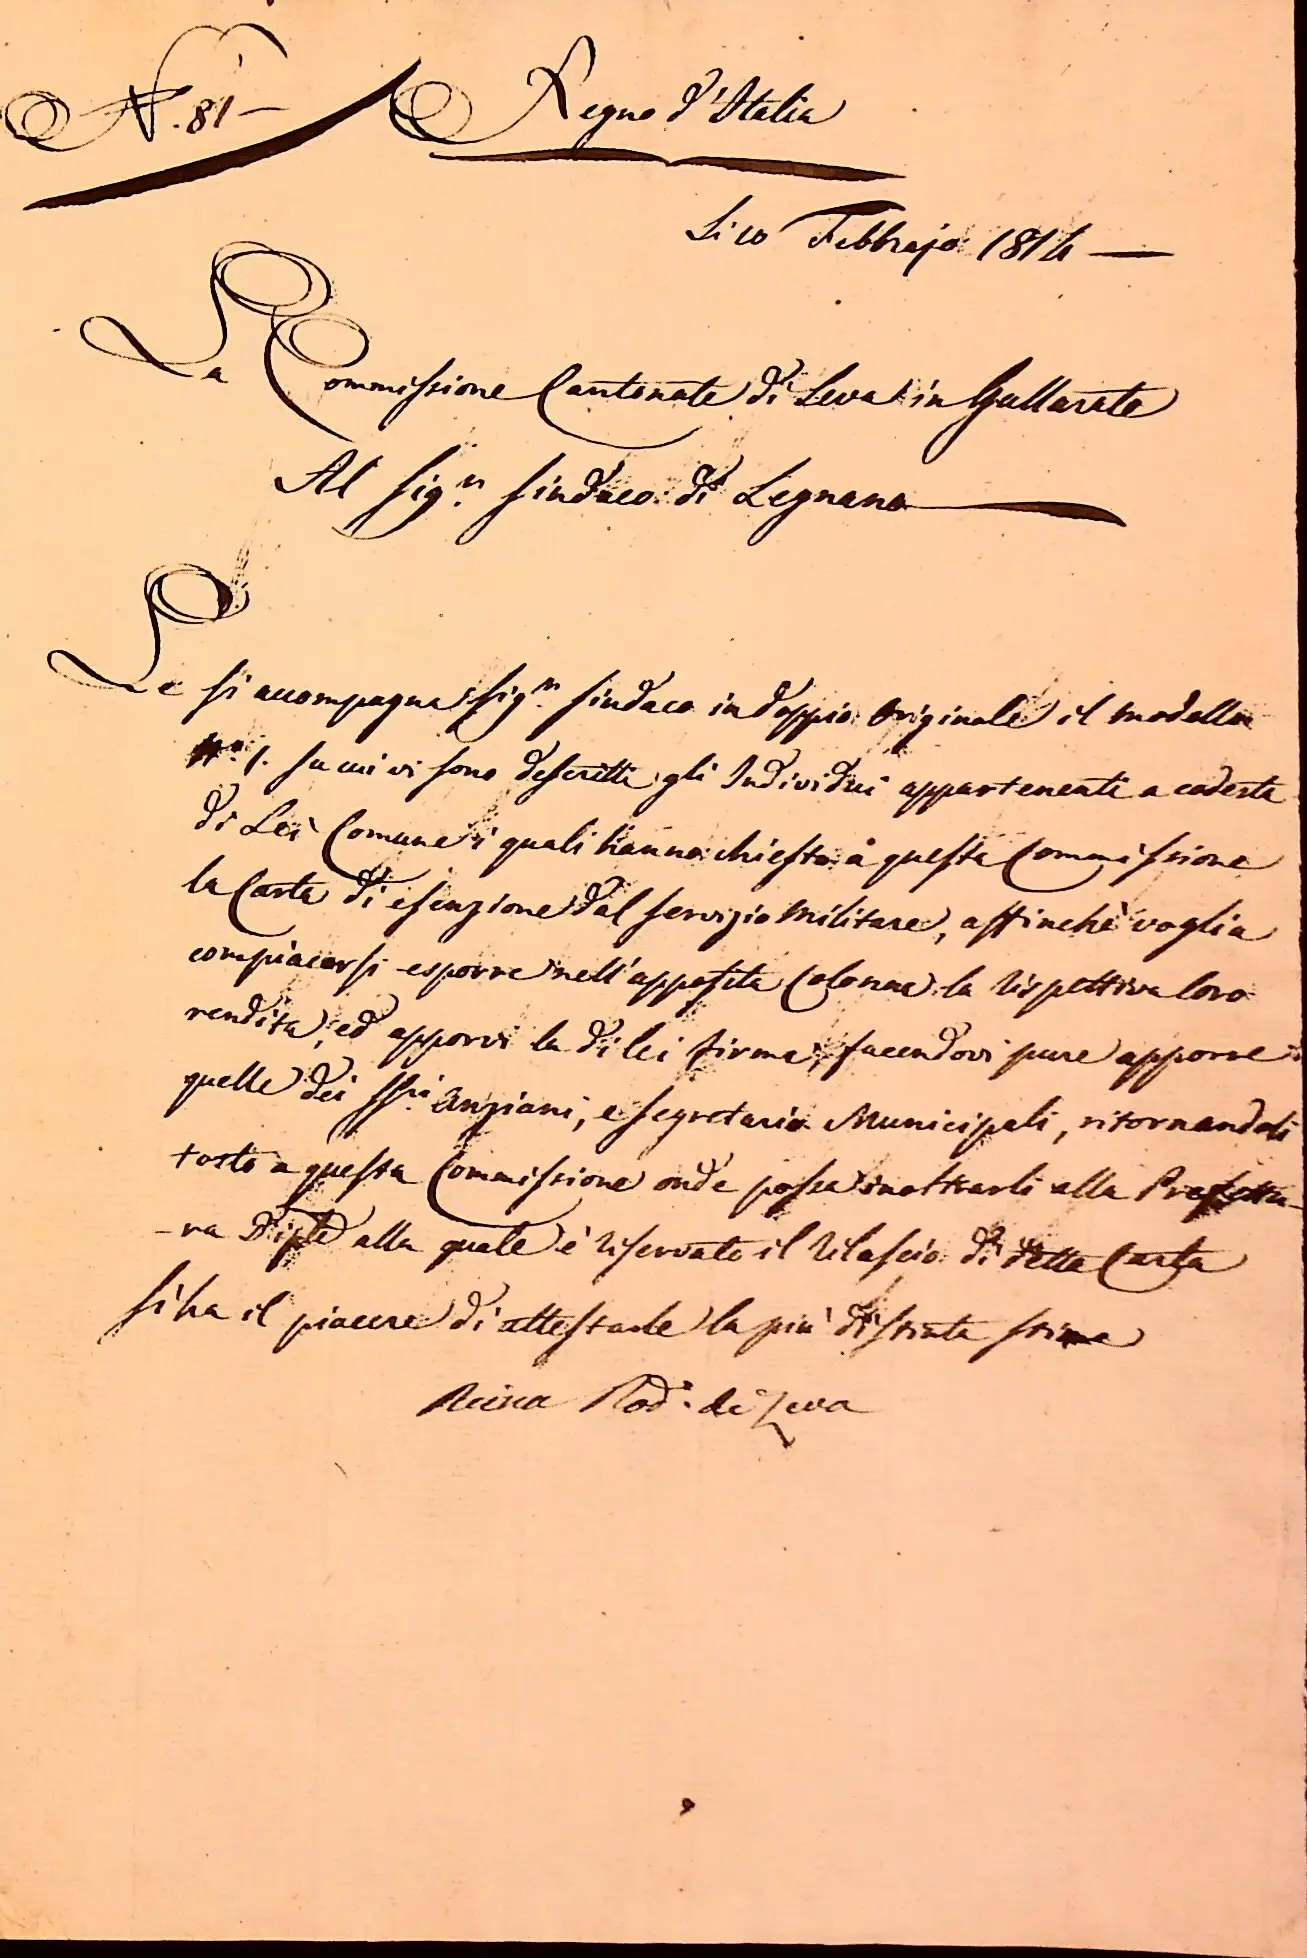 N. 81 Regno d'Italia
Li 10 Febbrajo 1814
La Commissione Cantonale di Leva in Gallarate
Al Sig.r Sindaco di Legnano
Le si accompagna Sig.r Sindaco in doppio Originale il modello
N.o 1. su cui vi sono descritti gli Individui appartenenti a codesta
di Lei Comune i quali hanno chiesto a questa Commissione
la Carta di esenzione dal servizio Militare, affinchè voglia
compiacersi esporre nell'apposita Colonna la rispettiva loro
rendita, ed apporvi la di lei firma, facendovi pure apporre
quelle dei SS.ri Anziani, e Segretario Municipali, ritornandoli
tosto a questa Commissione onde possa inoltrarli alla Prefettu-
-ra Dip.le alla quale è riservato il rilascio di detta Carta
Si ha il piacere di attestarle la più distinta stima
Reina Pod. di Leva